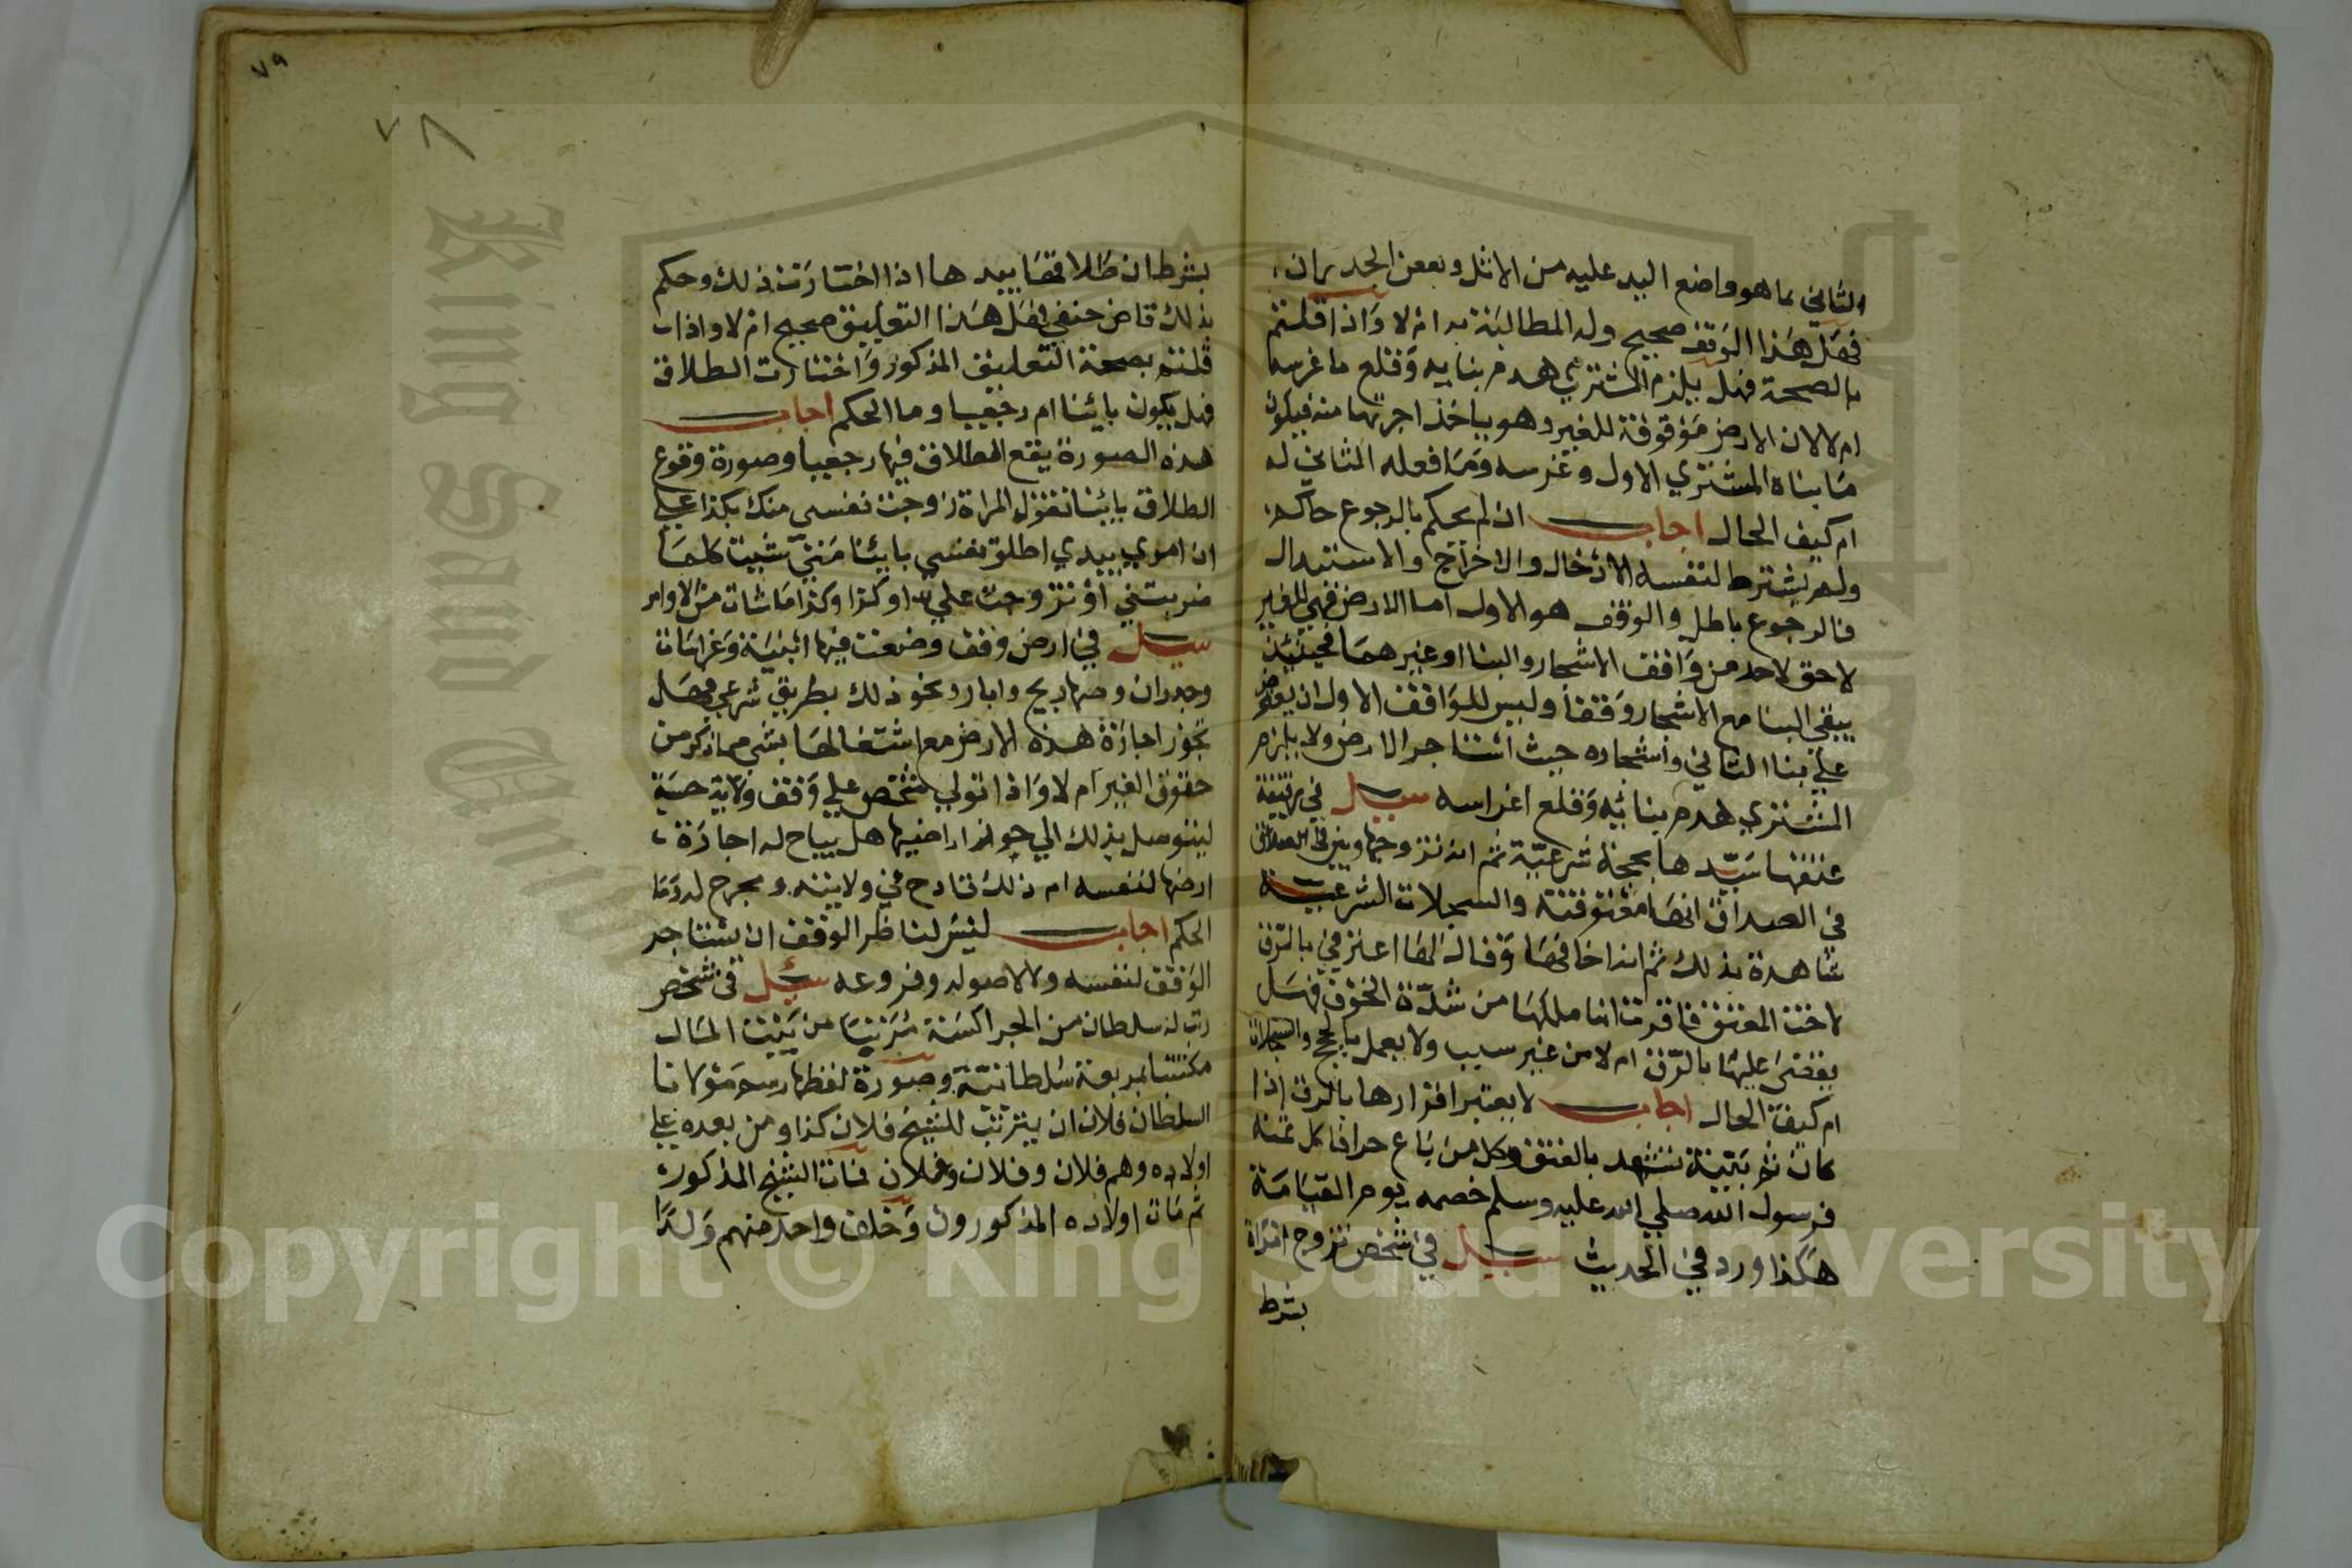 الثاني بما هو واضع اليد عليه من الاثل وبعض الجدران
فهل هذا الوقف صحيح وله المطالبة به ام لا واذا قلتم
بالصحة فهل يلزم المشتري هدم بنايه وقلع ما غرسه
ام لا لان الارض موقوفة للغير وهو ياخذ اجرتها منه فيكون
ما بناه المشتري الاول وغرسه وما فعله الثاني له
ام كيف الحال اجاب ان لم يحكم بالرجوع حاكم
ولم يشترط لنفسه الادخال والاخراج والاستبدال
فالرجوع باطل والوقف هو الاول اما الارض فهي للغير
لا حق لاحد من واقف الاشجار والبنا او غيرهما فحينئذ
يبقي البنا مع الاشجار وقفا وليس للواقف الاول ان يعترض
علي بنا الثاني واشجاره حيث استاجر الارض ولا يلزم
المشتري هدم بنائه وقلع اغراسه سيل في
عتقها سيدها بحجة شرعية ثم انه تزوجها وبين في الصداق
في الصداق انها معتوقته والسجلات الشرعية
شاهدة بذلك ثم انه اخافها وقال لها اعترفي بالرق
لاخت المعتق فاقرت انا ملكها من شدة الخوف فهل
يقضي عليها بالرق ام لا من غير سبب ولا يعمل بالحجج والسجلات
ام كيف الحال اجاب لا يعتبر اقرارها بالرق اذا
كان ثم بينة تشهد بالعتق وكل من باع حرا فاكل ثمنه
فرسول الله صلي الله عليه وسلم خصمه يوم القيامة
هكذا ورد في الحديث سيل في شخص تزوج امراة
بشرط
٧٩
٧٨
بشرط ان طلاقها بيدها اذا اختارت ذلك وحكم
بذلك قاض حنفي فهل هذا التعليق صحيح ام لا واذا
قلتم بصحة التعليق المذكور واختارت الطلاق
فهل يكون باينا ام رجعيا وما الحكم اجاب
هذه الصورة يقع الطلاق فيها رجعيا وصورة وقوع
الطلاق باينا تقول المراة زوجت نفسي منك بكذا علي
ان امري بيدي اطلق نفسي باينا متي شيت كلما
ضربتني او تزوجت علي او كذا وكذا ما شات من الاوامر
سيل في ارض وقف وضعت فيها ابنية وغراسات
وجدران وصهاريج وابار ونحو ذلك بطريق شرعي فهل
تجوز اجازة هذه الارض مع اشتغالها بشي مما ذكر من
حقوق الغير ام لا واذا تولي شخص علي وقف ولاية حسبة
ليتوصل بذلك الي جواز اراضيها هل يباح له اجارة
ارضها لنفسه ام ذلك قادح في ولايته ومجرح له وما
الحكم اجاب ليس لناظر الوقف ان يستاجر
الوقف لنفسه ولا لاصوله وفروعه سئل في شخص
رتب له سلطان من الجراكسة مرتبا من بيت المال
مكتتبا بمربعة سلطانية وصورة لفظها رسم مولانا
السلطان فلان ان يترتب للشيخ فلان كذا ومن بعده علي
اولاده وهم فلان وفلان وفلان فمات الشيخ المذكور
ثم مات اولاده المذكورون وخلف واحد منهم ولدا
Copyright © King Saud University
King Saud University